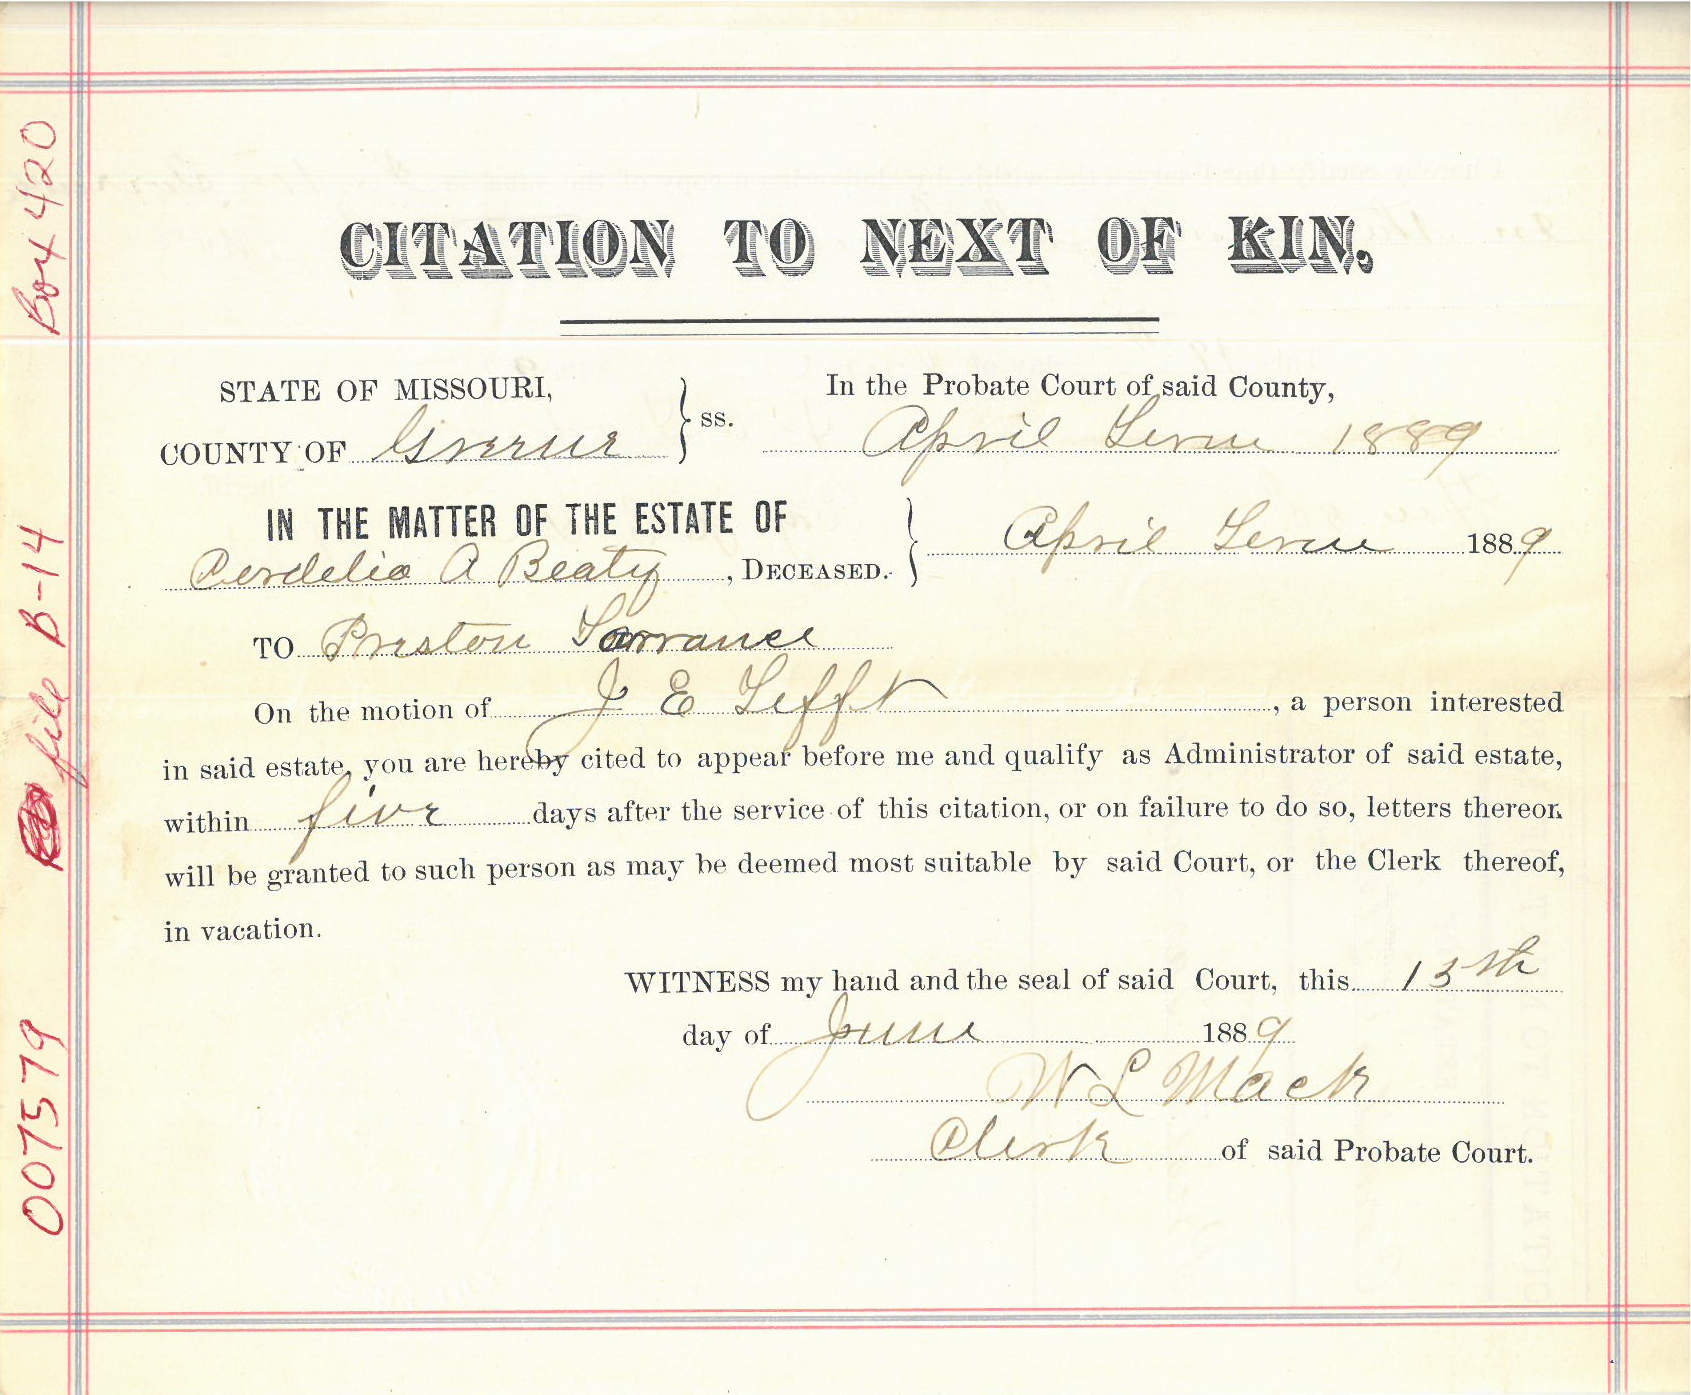 CITATION TO NEXT OF KIN.
STATE OF MISSOURI,
COUNTY OF Greene
ss.
In the Probate Court of said County,
April Term 1889
IN THE MATTER OF THE ESTATE OF
Cerdelia A Beaty, DECEASED.
April Term 1889
TO Preston Torrance
On the motion of J E Tefft, a person interested
in said estate, you are hereby cited to appear before me and qualify as Administrator of said estate,
within five days after the service of this citation, or on failure to do so, letters thereon
will be granted to such person as may be deemed most suitable by said Court, or the Clerk thereof,
in vacation.
WITNESS my hand and the seal of said Court, this 13th
day of June 1889
W L Mack
Clerk of said Probate Court.
Box 420
file B-14
007579